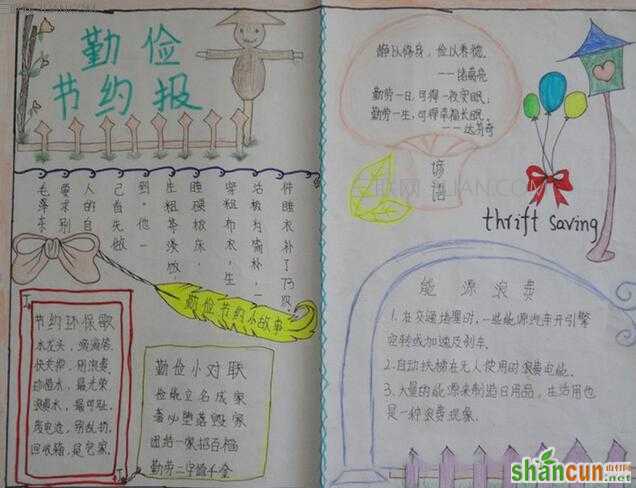 勤俭
节约报
毛泽东
要求别
人的自
己首先做
到,他一
生粗茶淡饭,
睡硬板床,
穿粗布衣,生
活极为简朴,一
件睡衣补了73次,
勤俭节约小故事
节约环保歌
水龙头,滴滴答。
快关掉,别浪费。
动脑水,最光荣
浪费水,最可耻。
废电池,别乱扔。
回收箱,是它家.
勤俭小对联
俭能立名成家
奢必堕落毁家
团结一家招百福
勤劳二字值千金
静以修身,俭以养德。
——诸葛亮
勤劳一日,可得一夜安眠;
勤劳一生,可得幸福长眠。
——达芬奇
谚语
thrift saving
能源浪费
1.在交通堵塞时,一些能源汽车开引擎
空转或加速及刹车.
2.自动扶梯在无人使用时浪费电能.
3.大量的能源来制造日用品,生活用也
是一种浪费现象.
三联网 3LIAN.COM
shancun.net
山村网